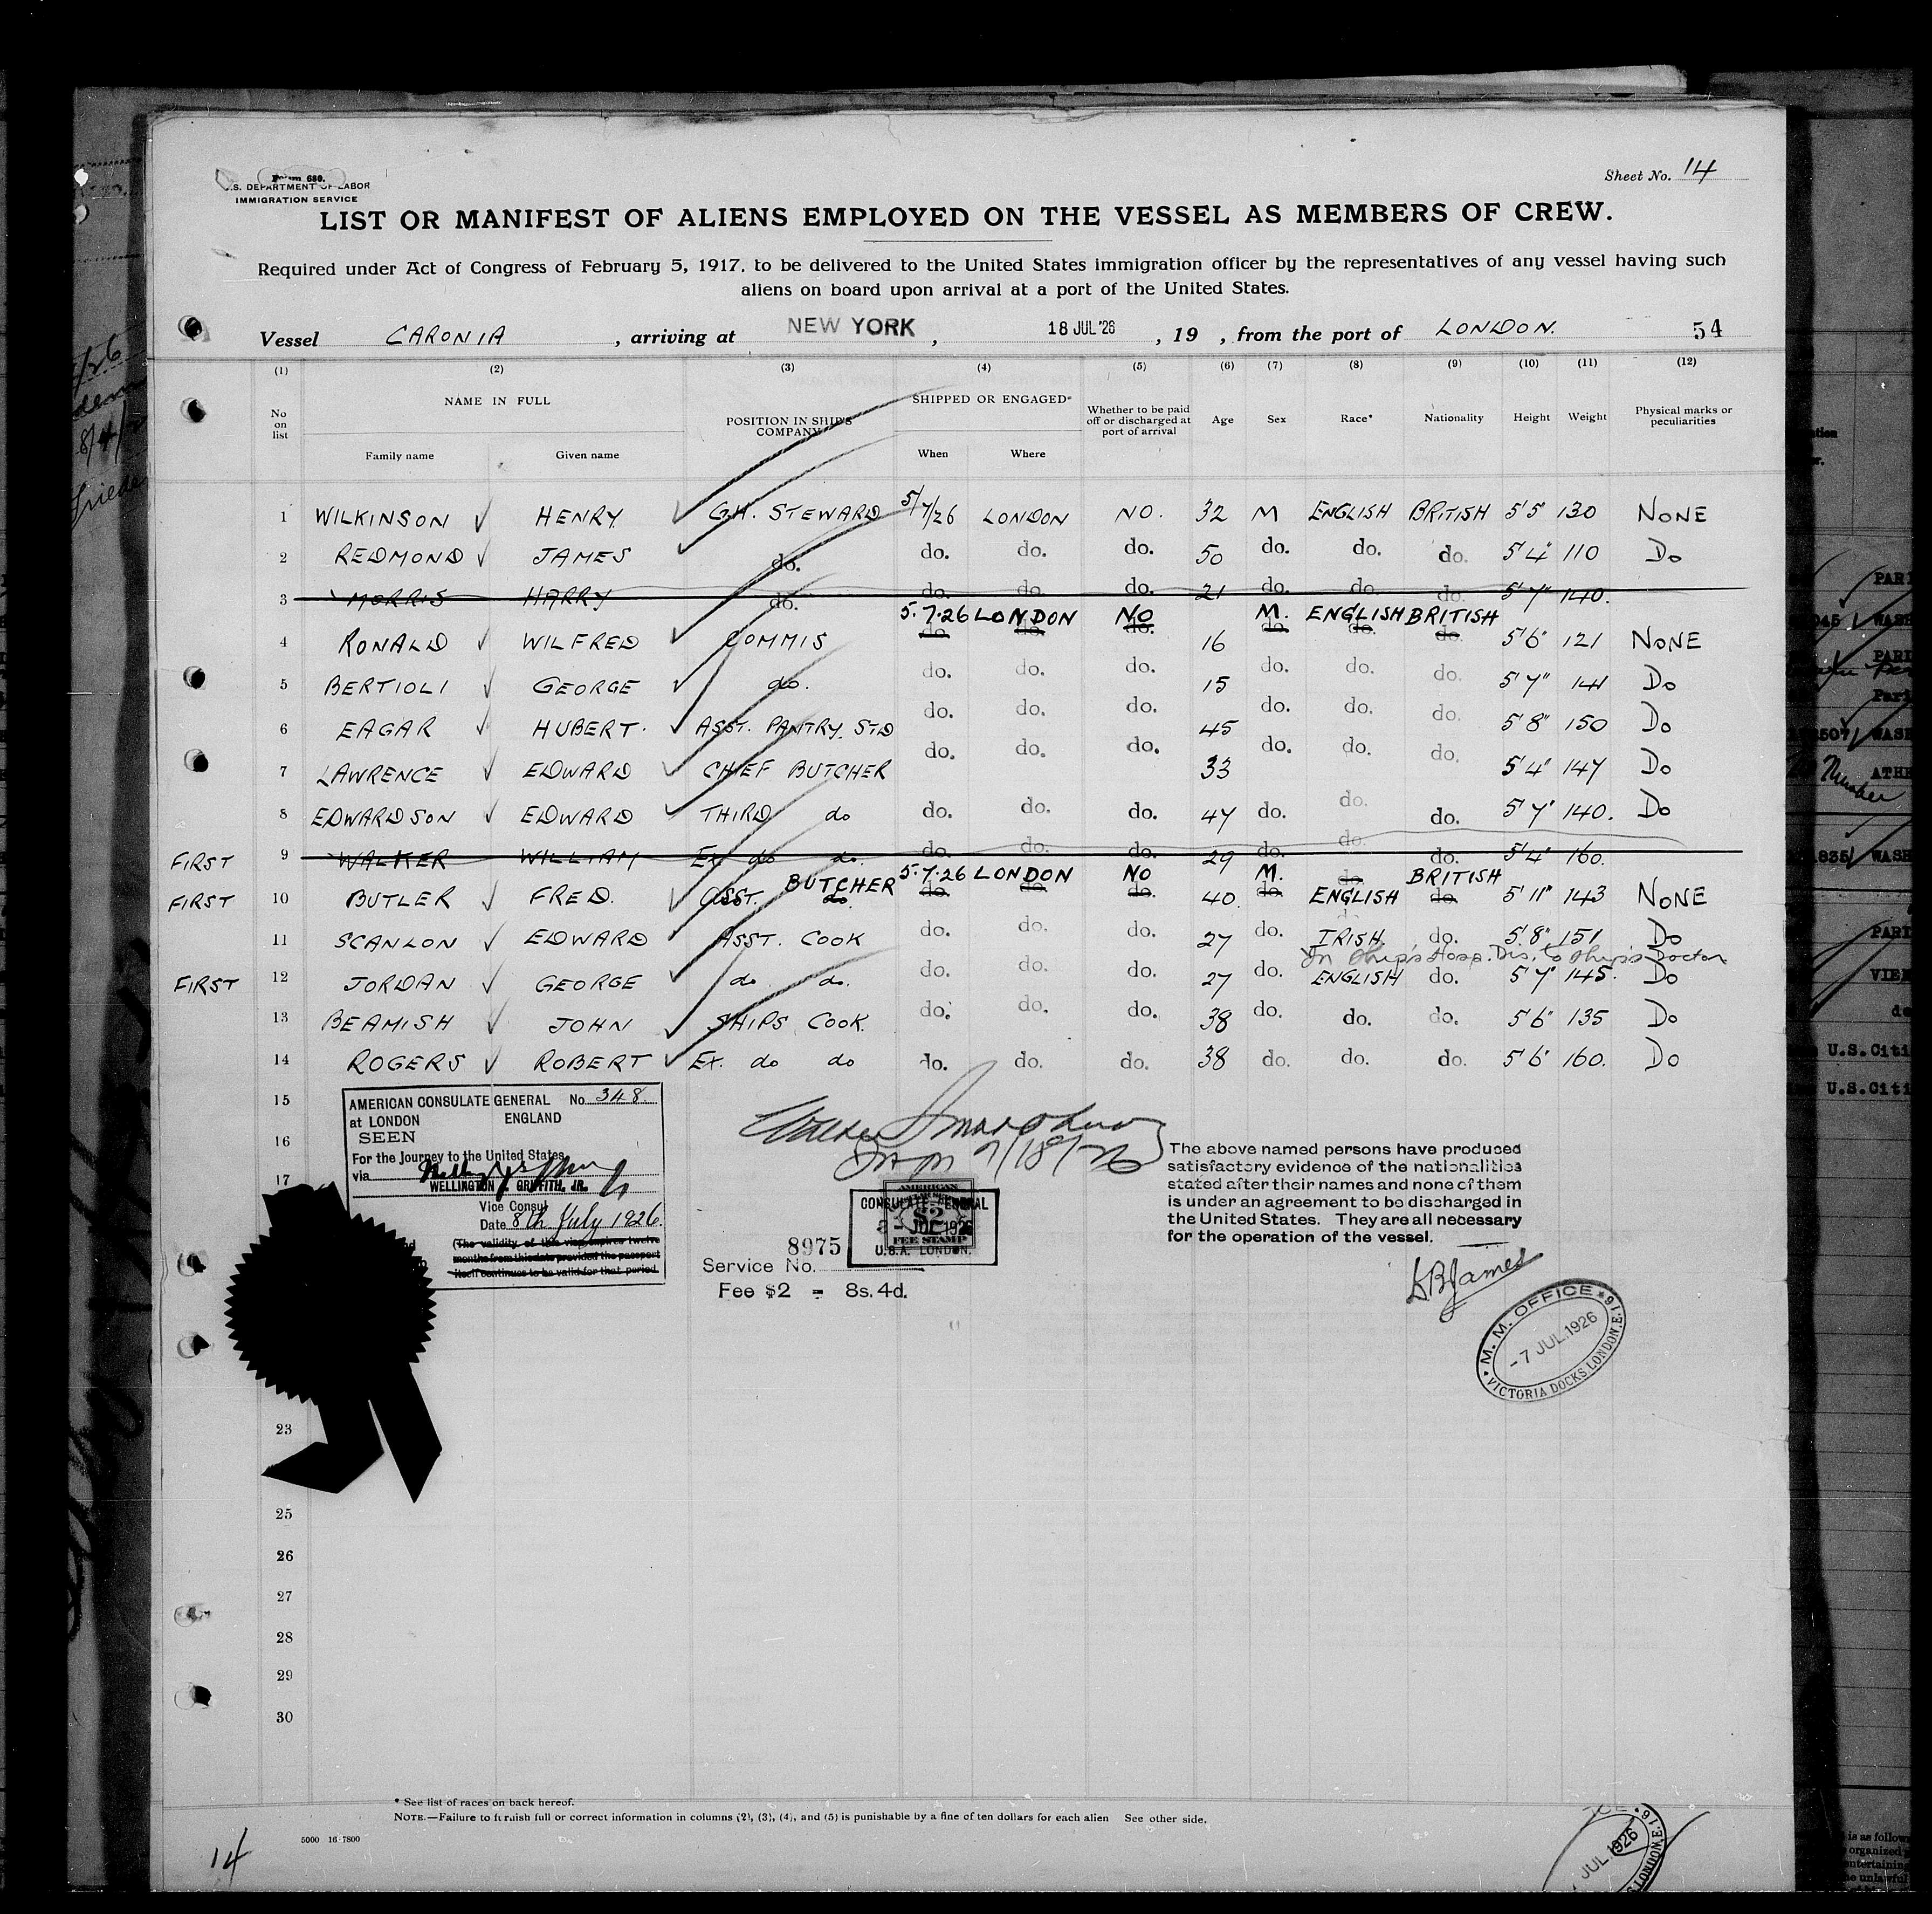 Form 680.
U.S. DEPARTMENT OF LABOR
IMMIGRATION SERVICE
Sheet No. 14
LIST OR MANIFEST OF ALIENS EMPLOYED ON THE VESSEL AS MEMBERS OF CREW.
Required under Act of Congress of February 5, 1917, to be delivered to the United States immigration officer by the representatives of any vessel having such
aliens on board upon arrival at a port of the United States.
Vessel CARONIA, arriving at NEW YORK, 18 JUL '26, 19 , from the port of LONDON. 54
(1) (2) (3) (4) (5) (6) (7) (8) (9) (10) (11) (12)
No on list NAME IN FULL Family name Given name POSITION IN SHIP'S COMPANY SHIPPED OR ENGAGED* When Where Whether to be paid off or discharged at port of arrival Age Sex Race* Nationality Height Weight Physical marks or peculiarities
1 WILKINSON √ HENRY √ G.H. STEWARD 5/7/26 LONDON NO. 32 M ENGLISH BRITISH 5'5" 130 NONE
2 REDMOND √ JAMES √ do. do. do. do. 50 do. do. do. 5'4" 110 Do
3 MORRIS HARRY do. do. do. do. 21 do. do. do. 5'7" 140.
5.7.26 LONDON NO M. ENGLISH BRITISH
4 RONALD √ WILFRED √ COMMIS do. do. do. 16 do. do. do. 5'6" 121 NONE
5 BERTIOLI √ GEORGE √ do. do. do. do. 15 do. do. do. 5'7" 141 Do
6 EAGAR √ HUBERT. √ ASST. PANTRY. STD do. do. do. 45 do. do. do. 5'8" 150 Do
7 LAWRENCE √ EDWARD √ CHIEF BUTCHER do. do. do. 33 do. do. do. 5'4" 147 Do
8 EDWARDSON √ EDWARD √ THIRD do do. do. do. 47 do. do. do. 5'7" 140. Do
FIRST 9 WALKER WILLIAM Ex do do. do. do. do. 29 do. do. do. 5'4" 160.
BUTCHER 5.7.26 LONDON NO M. BRITISH
FIRST 10 BUTLER √ FRED. √ ASST. do. do. do. do. 40 do. do. ENGLISH do. 5'11" 143 NONE
11 SCANLON √ EDWARD √ ASST. COOK do. do. do. 27 do. IRISH. do. 5'8" 151 Do
In Ship's Hosp. Dis. to Ship's Doctor
FIRST 12 JORDAN √ GEORGE √ do do. do. do. do. 27 do. ENGLISH do. 5'7" 145. Do
13 BEAMISH √ JOHN √ SHIPS COOK. do. do. do. 38 do. do. do. 5'6" 135 Do
14 ROGERS √ ROBERT √ Ex. do do do. do. do. 38 do. do. do. 5'6" 160. Do
15
16
17
AMERICAN CONSULATE GENERAL No. 348.
at LONDON ENGLAND
SEEN
For the Journey to the United States
via
WELLINGTON GRIFFITH, JR.
Vice Consul
Date 8th July 1926.
(The validity of this visa expires twelve
months from this date provided the passport
itself continues to be valid for that period.
7/18/26
AMERICAN
$2
FEE STAMP
CONSULATE GENERAL
JUL 1926
U.S.A. LONDON.
8975
Service No.
Fee $2 = 8s. 4d.
The above named persons have produced
satisfactory evidence of the nationalities
stated after their names and none of them
is under an agreement to be discharged in
the United States. They are all necessary
for the operation of the vessel.
M. M. OFFICE
-7 JUL 1926
VICTORIA DOCKS, LONDON, E.16
23
25
26
27
28
29
30
* See list of races on back hereof.
NOTE.—Failure to furnish full or correct information in columns (2), (3), (4), and (5) is punishable by a fine of ten dollars for each alien See other side.
5000 16-7800
14
JUL 1926
LONDON, E.16